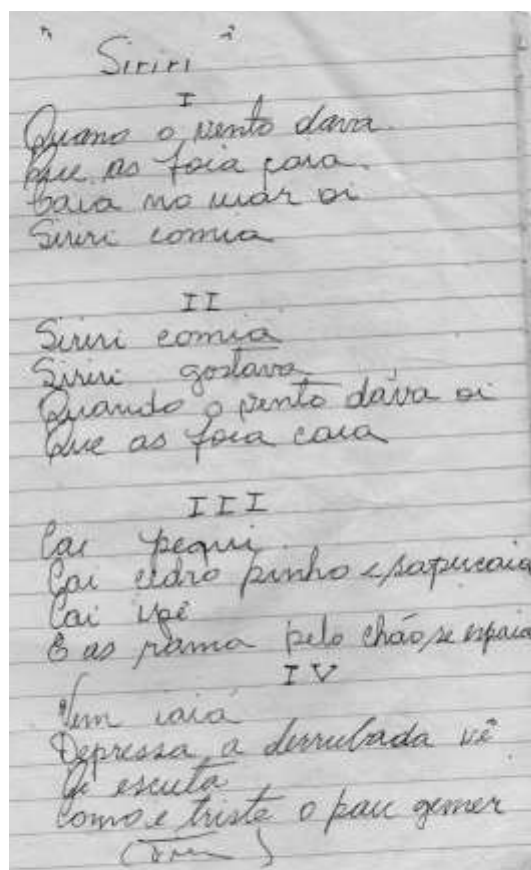 " Siriri "
I
Quano o vento dava
Que as foia caia
Caia no mar oi
Siriri comia
II
Siriri comia
Siriri gostava
Quando o vento dáva oi
Que as foia caia
III
Cai pequi
Cai cedro pinho e sapucaia
Cai ipê
E as rama pelo chão se espaia
IV
Vem iaiá
Depressa a derrubada vê
escuta
Como e triste o pau gemer